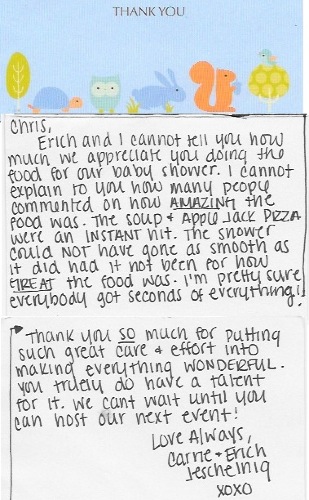 THANK YOU
Chris,
Erich and I cannot tell you how
much we appreciate you doing the
food for our baby shower. I cannot
explain to you how many people
commented on how AMAZING the
food was. The soup & Apple Jack Pizza
were an INSTANT hit. The shower
could NOT have gone as smooth as
it did had it not been for how
GREAT the food was. I'm pretty sure
everybody got seconds of everything!
Thank you SO much for putting
such great care & effort into
making everything WONDERFUL.
You truely do have a talent
for it. We cant wait until you
can host our next event!
Love Always,
Carrie & Erich
Jeschelnig
XOXO